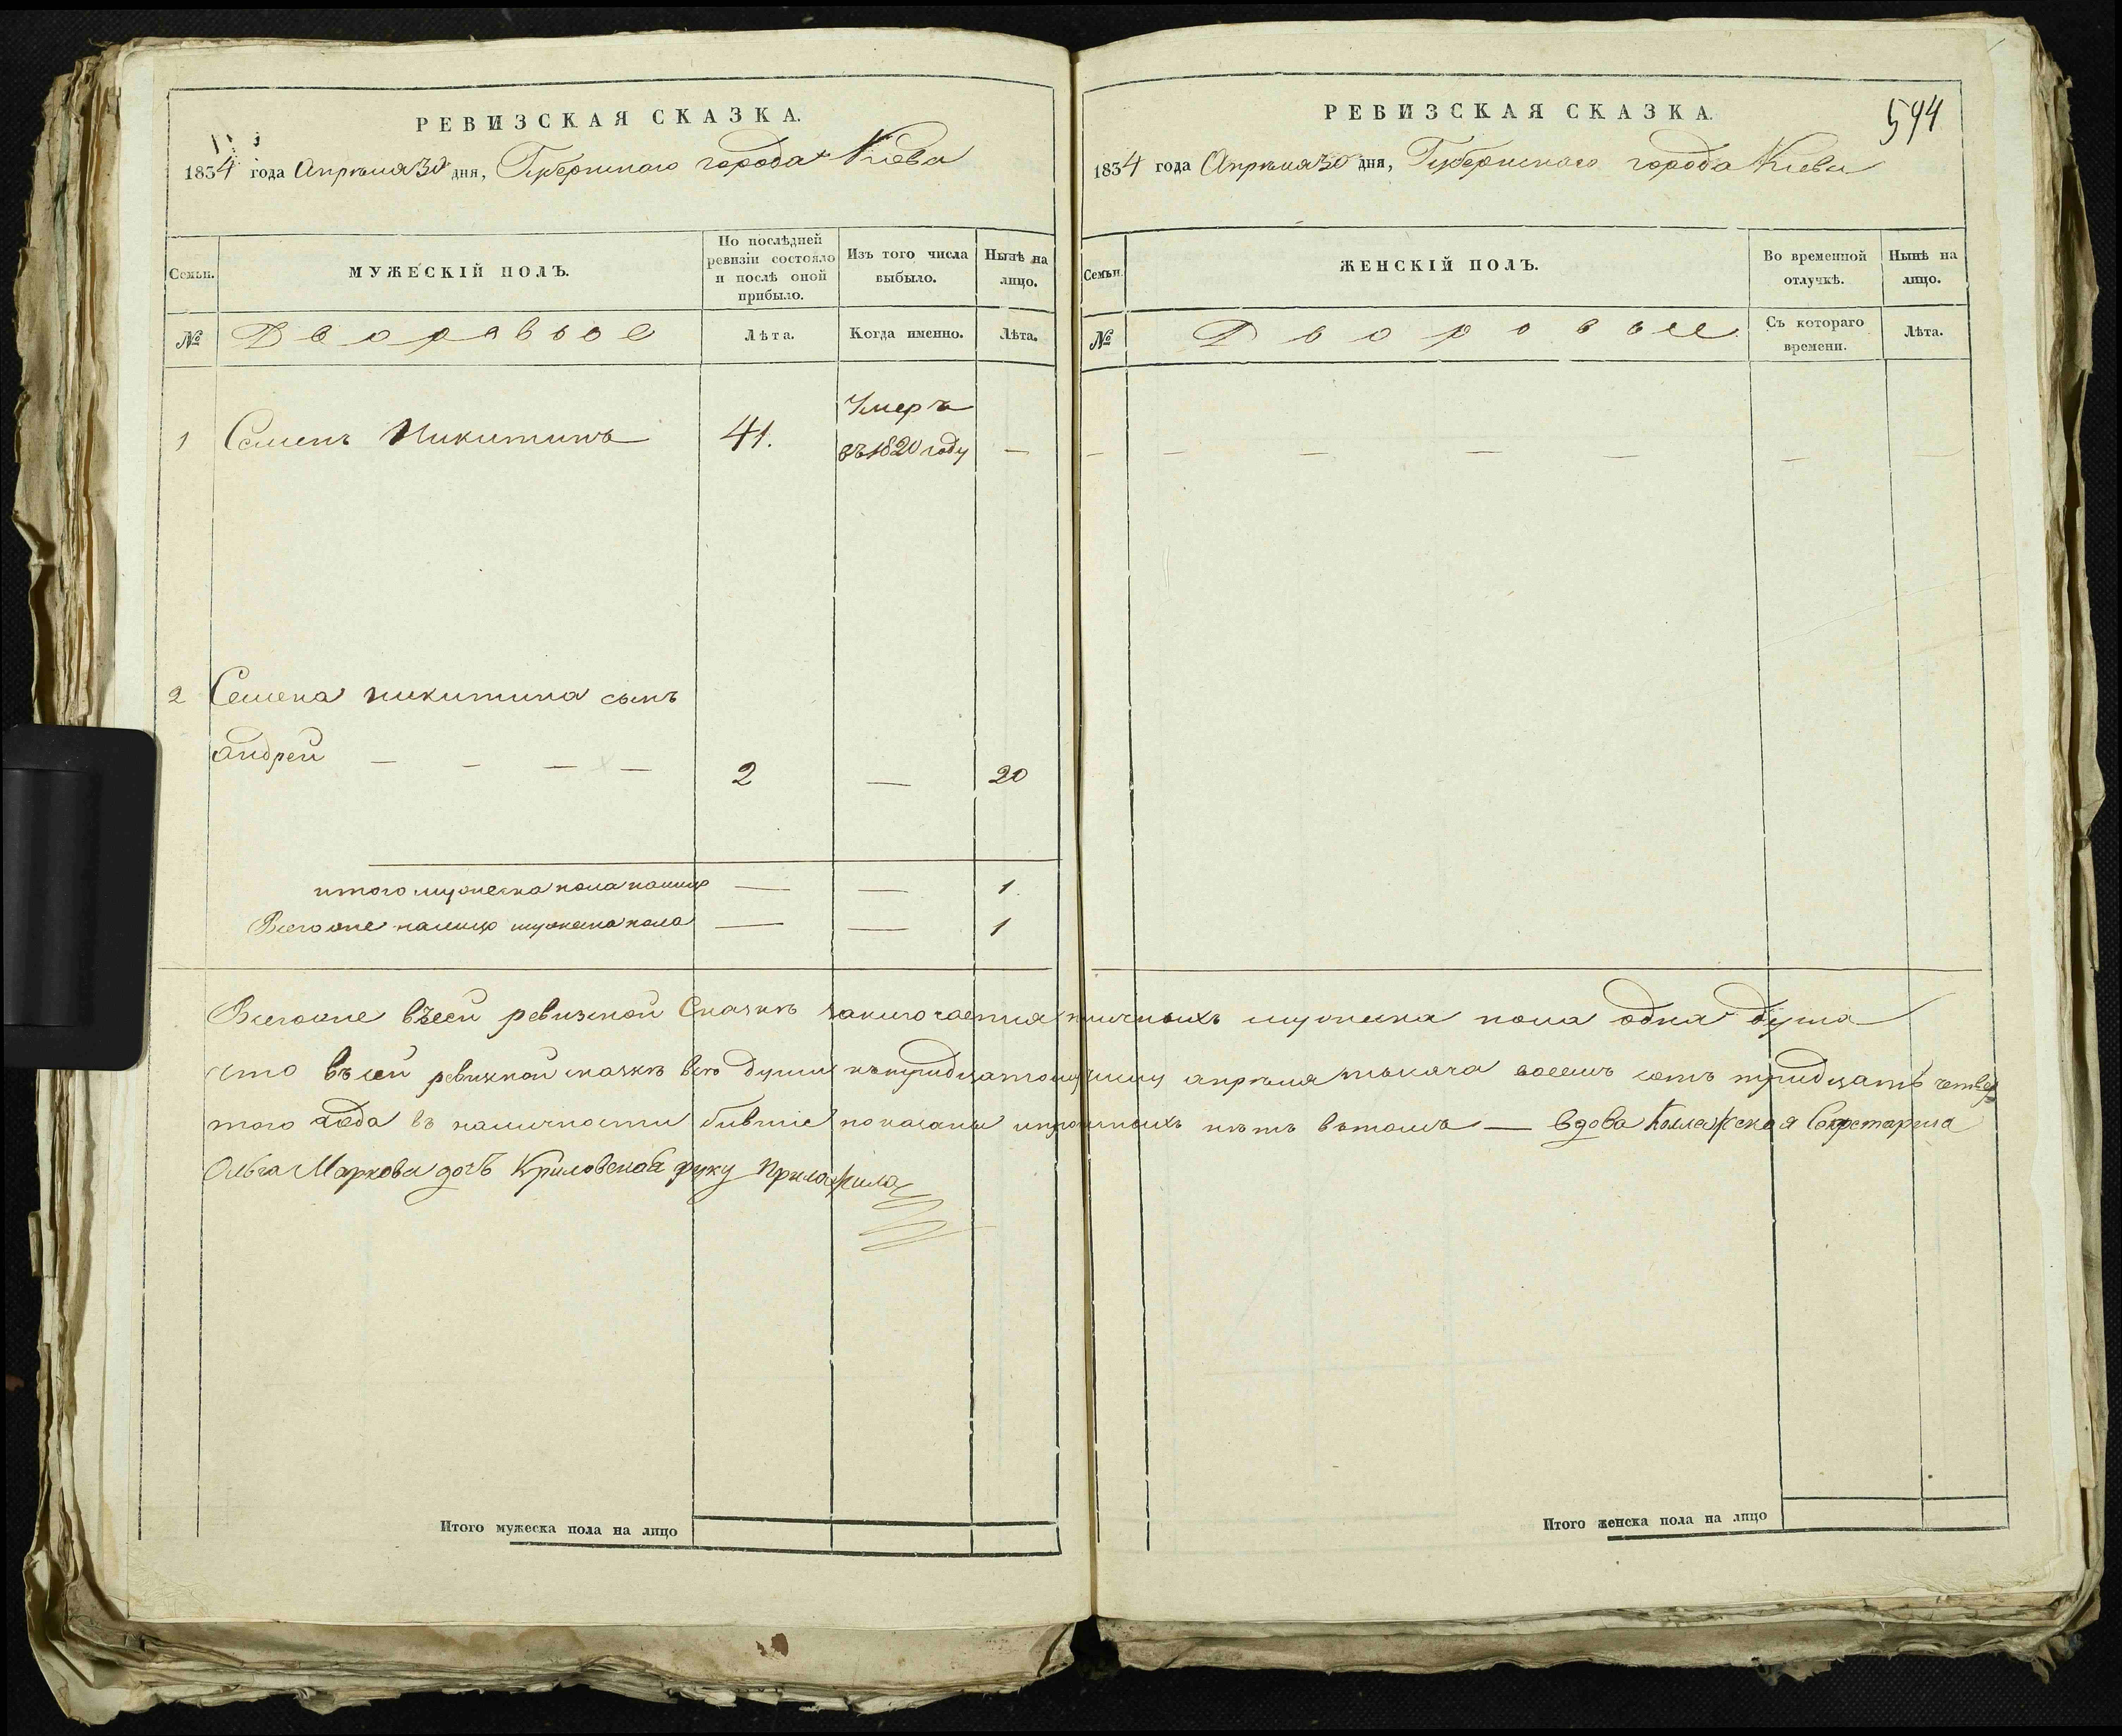 РЕВИЗСКАЯ СКАЗКА.
1834 года Апрѣля 30 дня, Губернскаго города Кіева
Семьи.
МУЖЕСКІЙ ПОЛЪ.
По послѣдней ревизіи состояло и послѣ оной прибыло.
Изъ того числа выбыло.
Нынѣ на лицо.
№
Дворовые
Лѣта.
Когда именно.
Лѣта.
1 Семенъ Никитинъ 41. Умеръ въ 1820 году —
2 Семена Никитина сынъ
андрей — — — — 2 — 20
итого мужеска пола налицо — — 1
Всего оне налицо мужеска пола — — 1
РЕВИЗСКАЯ СКАЗКА.
594
1834 года Апрѣля 30 дня, Губернскаго города Кіева
Семьи.
ЖЕНСКІЙ ПОЛЪ.
Во временной отлучкѣ.
Нынѣ на лицо.
№
Дворовые
Съ котораго времени.
Лѣта.
— — — — — — — —
въсей ревизкой Сказкѣ заключается личныхъ мужеска пола одна душа
что въсей ревизкой сказкѣ всѣ души къ тридцатому числу апрѣля тысяча восемь сотъ тридцать четвер
того года въ наличности бывшіе показаны нѣтъ вътомъ — вдова Коллежская Секретарша
Ольга Маркова дочъ Криловская руку Приложила
Итого мужеска пола на лицо
Итого женска пола на лицо